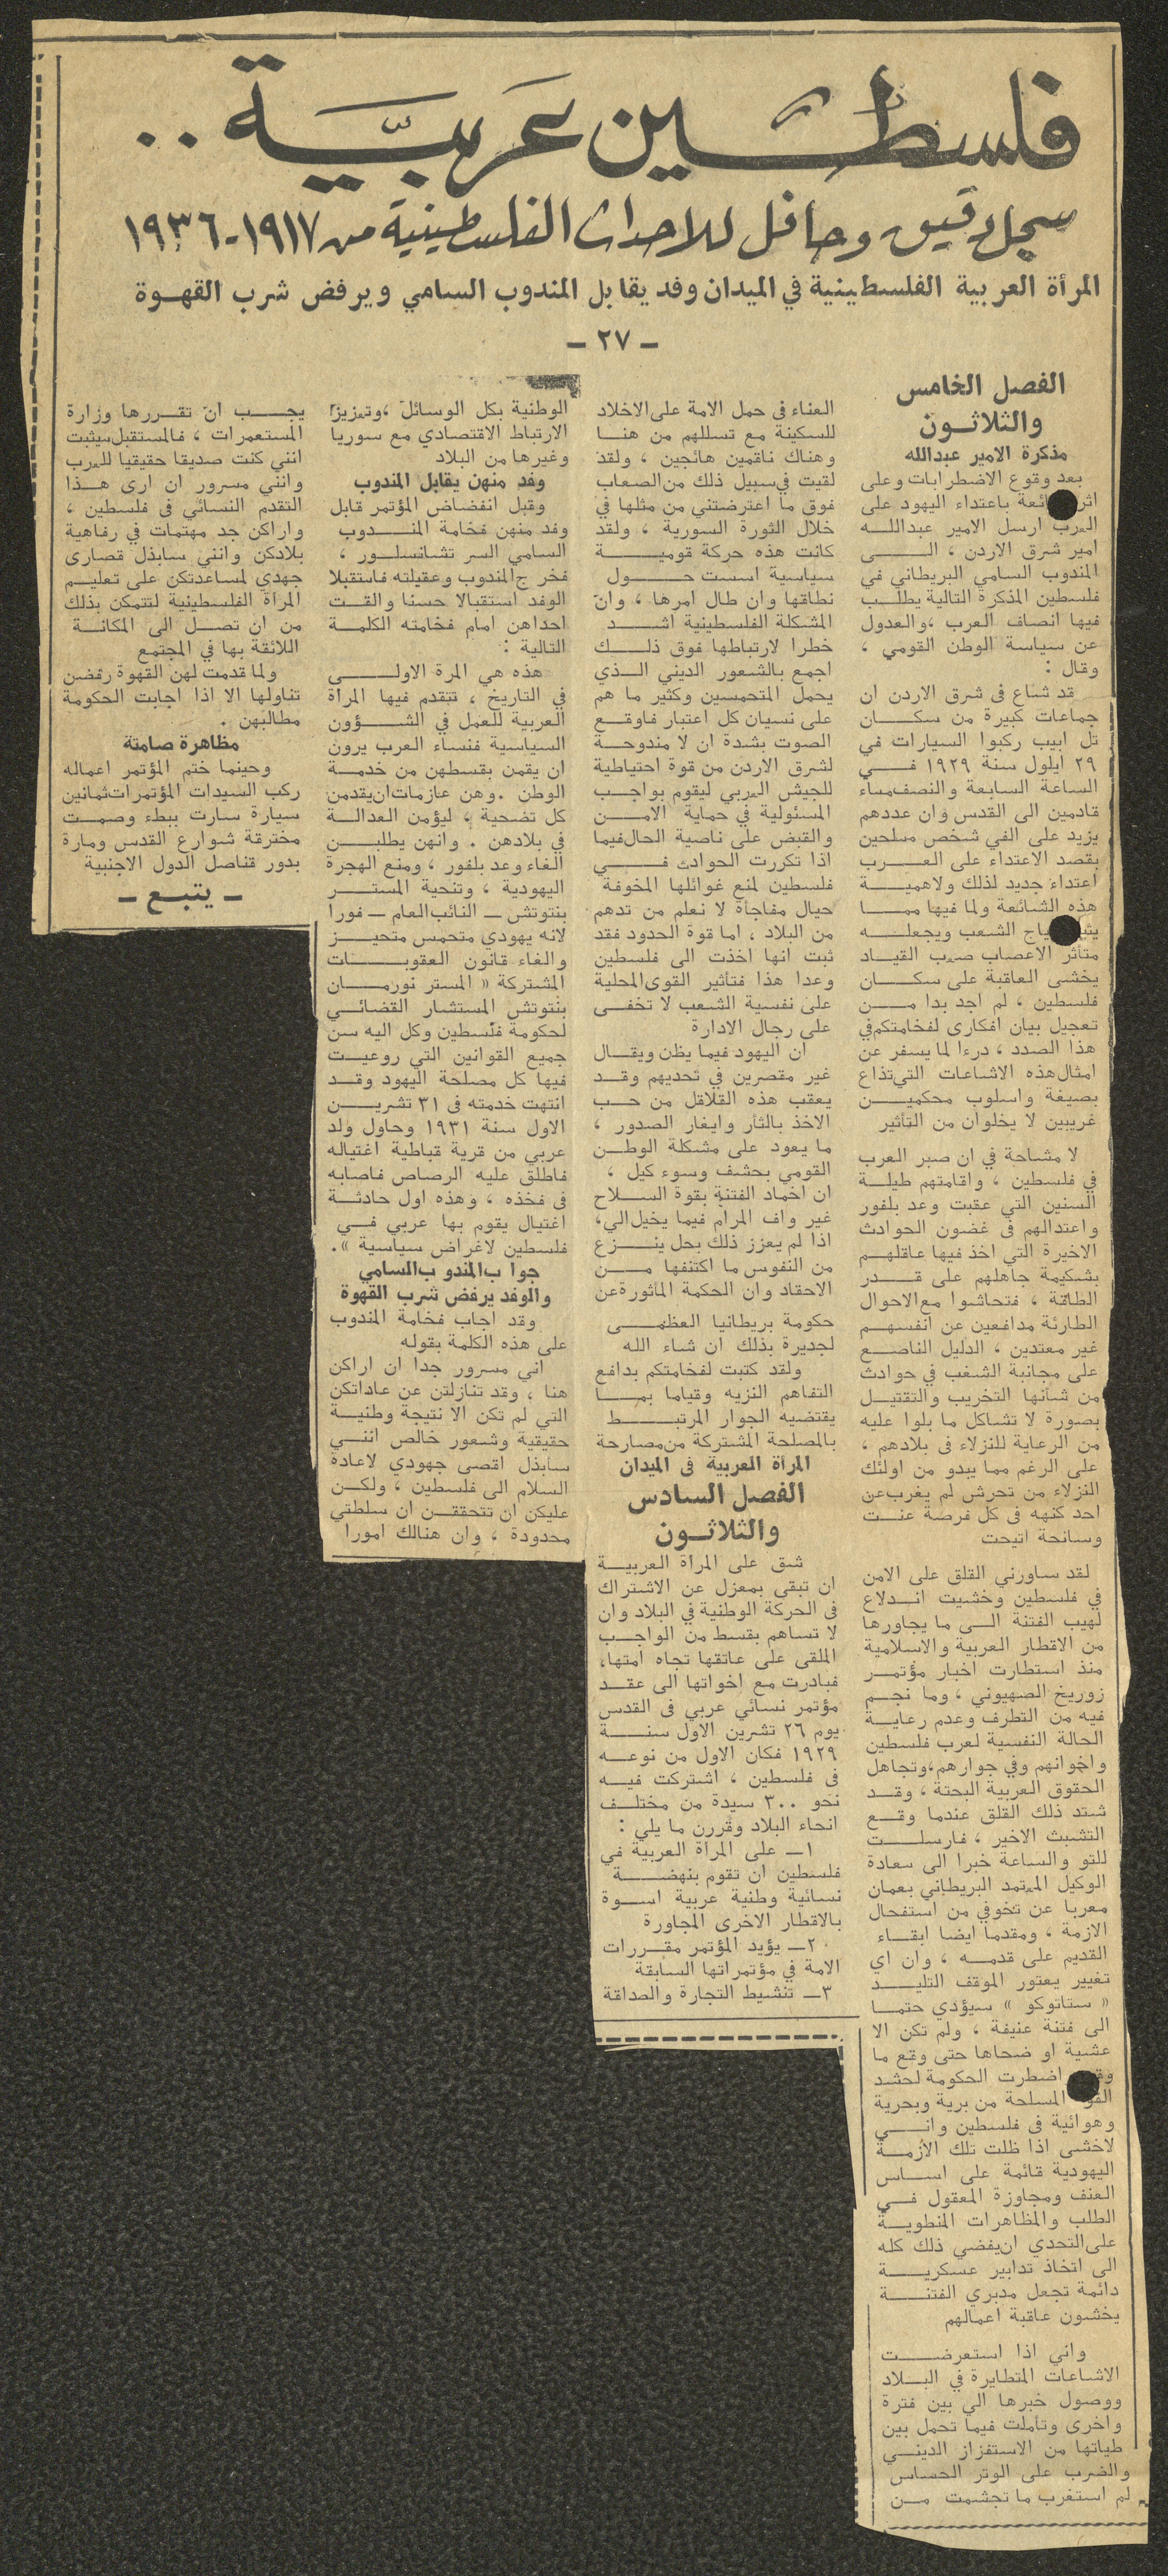 فلسطين عربية ..
سجل دقيق وحافل للاحداث الفلسطينية من ١٩١٧-١٩٣٦
المرأة العربية الفلسطينية في الميدان وفد يقابل المندوب السامي ويرفض شرب القهوة
- ٢٧ -
الفصل الخامس
والثلاثون
مذكرة الامير عبدالله
بعد وقوع الاضطرابات وعلى
اثر ائعة باعتداء اليهود على
العرب ارسل الامير عبدالله
امير شرق الاردن ، الى
المندوب السامي البريطاني في
فلسطين المذكرة التالية يطلب
فيها انصاف العرب ، والعدول
عن سياسة الوطن القومي ،
وقال :
قد شاع فى شرق الاردن ان
جماعات كبيرة من سكان
تل ابيب ركبوا السيارات في
٢٩ ايلول سنة ١٩٢٩ في
الساعة السابعة والنصف مساء
قادمين الى القدس وان عددهم
يزيد على الفي شخص مسلحين
بقصد الاعتداء على العرب
اعتداء جديد لذلك ولاهمية
هذه الشائعة ولما فيها مما
ياج الشعب ويجعله
متأثر الاعصاب صعب القياد
يخشى العاقبة على سكان
فلسطين ، لم اجد بدا من
تعجيل بيان افكارى لفخامتكم في
هذا الصدد ، درءا لما يسفر عن
امثال هذه الاشاعات التي تذاع
بصيغة واسلوب محكمين
غريبين لا يخلوان من التأثير
لا مشاحة في ان صبر العرب
في فلسطين ، واقامتهم طيلة
السنين التي عقبت وعد بلفور
واعتدالهم فى غضون الحوادث
الاخيرة التي اخذ فيها عاقلهم
بشكيمة جاهلهم على قدر
الطاقة ، فتحاشوا مع الاحوال
الطارئة مدافعين عن انفسهم
غير معتدين ، الدليل الناصع
على مجانبة الشغب في حوادث
من شأنها التخريب والتقتيل
بصورة لا تشاكل ما بلوا عليه
من الرعاية للنزلاء فى بلادهم ،
على الرغم مما يبدو من اولئك
النزلاء من تحرش لم يغرب عن
احد كنهه فى كل فرصة عنت
وسانحة اتيحت
لقد ساورني القلق على الامن
في فلسطين وخشيت اندلاع
لهيب الفتنة الى ما يجاورها
من الاقطار العربية والاسلامية
منذ استطارت اخبار مؤتمر
زوريخ الصهيوني ، وما نجم
فيه من التطرف وعدم رعاية
الحالة النفسية لعرب فلسطين
واخوانهم وفي جوارهم ، وتجاهل
الحقوق العربية البحتة ، وقد
شتد ذلك القلق عندما وقع
التشبث الاخير ، فارسلت
للتو والساعة خبرا الى سعادة
الوكيل المعتمد البريطاني بعمان
معربا عن تخوفي من استفحال
الازمة ، ومقدما ايضا ابقاء
القديم على قدمه ، وان اي
تغيير يعتور الموقف التليد
« ستاتوكو » سيؤدي حتما
الى فتنة عنيفة ، ولم تكن الا
عشية او ضحاها حتى وقع ما
اضطرت الحكومة لحشد
المسلحة من برية وبحرية
وهوائية فى فلسطين واني
لاخشى اذا ظلت تلك الازمة
اليهودية قائمة على اساس
العنف ومجاوزة المعقول في
الطلب والمظاهرات المنطوية
على التحدي ان يفضي ذلك كله
الى اتخاذ تدابير عسكرية
دائمة تجعل مدبري الفتنة
يخشون عاقبة اعمالهم
واني اذا استعرضت
الاشاعات المتطايرة في البلاد
ووصول خبرها الي بين فترة
واخرى وتأملت فيما تحمل بين
طياتها من الاستفزاز الديني
والضرب على الوتر الحساس
لم استغرب ما تجشمت من
العناء فى حمل الامة على الاخلاد
للسكينة مع تسللهم من هنا
وهناك ناقمين هائجين ، ولقد
لقيت في سبيل ذلك من الصعاب
فوق ما اعترضتني من مثلها في
خلال الثورة السورية ، ولقد
كانت هذه حركة قومية
سياسية اسست حول
نطاقها وان طال امرها ، وان
المشكلة الفلسطينية اشد
خطرا لارتباطها فوق ذلك
اجمع بالشعور الديني الذي
يحمل المتحمسين وكثير ما هم
على نسيان كل اعتبار فاوقع
الصوت بشدة ان لا مندوحة
لشرق الاردن من قوة احتياطية
للجيش العربي ليقوم بواجب
المسئولية في حماية الامن
والقبض على ناصية الحال فيما
اذا تكررت الحوادث في
فلسطين لمنع غوائلها المخوفة
حيال مفاجأة لا نعلم من تدهم
من البلاد ، اما قوة الحدود فقد
ثبت انها اخذت الى فلسطين
وعدا هذا فتأثير القوى المحلية
على نفسية الشعب لا تخفى
على رجال الادارة
ان اليهود فيما يظن ويقال
غير مقصرين في تحديهم وقد
يعقب هذه القلاقل من حب
الاخذ بالثأر وايغار الصدور ،
ما يعود على مشكلة الوطن
القومي بحشف وسوء كيل ،
ان اخماد الفتنة بقوة السلاح
غير واف المرام فيما يخيل الي ،
اذا لم يعزز ذلك بحل ينزع
من النفوس ما اكتنفها من
الاحقاد وان الحكمة المأثورة عن
حكومة بريطانيا العظمى
لجديرة بذلك ان شاء الله
ولقد كتبت لفخامتكم بدافع
التفاهم النزيه وقياما بما
يقتضيه الجوار المرتبط
بالمصلحة المشتركة من مصارحة
المرأة العربية فى الميدان
الفصل السادس
والثلاثون
شق على المرأة العربية
ان تبقى بمعزل عن الاشتراك
فى الحركة الوطنية في البلاد وان
لا تساهم بقسط من الواجب
الملقى على عاتقها تجاه امتها ،
فبادرت مع اخواتها الى عقد
مؤتمر نسائي عربي فى القدس
يوم ٢٦ تشرين الاول سنة
١٩٢٩ فكان الاول من نوعه
فى فلسطين ، اشتركت فيه
نحو ٣٠٠ سيدة من مختلف
انحاء البلاد وقررن ما يلي :
١ــ على المرأة العربية في
فلسطين ان تقوم بنهضة
نسائية وطنية عربية اسوة
بالاقطار الاخرى المجاورة
٢ــ يؤيد المؤتمر مقررات
الامة في مؤتمراتها السابقة
٣ــ تنشيط التجارة والصداقة
الوطنية بكل الوسائل ، وتعزيز
الارتباط الاقتصادي مع سوريا
وغيرها من البلاد
وفد منهن يقابل المندوب
وقبل انفضاض المؤتمر قابل
وفد منهن فخامة المندوب
السامي السر تشانسلور ،
فخرج المندوب وعقيلته فاستقبلا
الوفد استقبالا حسنا والقت
احداهن امام فخامته الكلمة
التالية :
هذه هي المرة الاولى
في التاريخ ، تتقدم فيها المرأة
العربية للعمل في الشؤون
السياسية فنساء العرب يرون
ان يقمن بقسطهن من خدمة
الوطن . وهن عازمات ان يقدمن
كل تضحية ، ليؤمن العدالة
في بلادهن . وانهن يطلبن
الغاء وعد بلفور ، ومنع الهجرة
اليهودية ، وتنحية المستر
بنتوتش ــ النائب العام ــ فورا
لانه يهودي متحمس متحيز
والغاء قانون العقوبات
المشتركة « المستر نورمان
بنتوتش المستشار القضائي
لحكومة فلسطين وكل اليه سن
جميع القوانين التي روعيت
فيها كل مصلحة اليهود وقد
انتهت خدمته فى ٣١ تشرين
الاول سنة ١٩٣١ وحاول ولد
عربي من قرية قباطية اغتياله
فاطلق عليه الرصاص فاصابه
فى فخذه ، وهذه اول حادثة
اغتيال يقوم بها عربي في
فلسطين لاغراض سياسية » .
جواب المندوب السامي
والوفد يرفض شرب القهوة
وقد اجاب فخامة المندوب
على هذه الكلمة بقوله
اني مسرور جدا ان اراكن
هنا ، وقد تنازلتن عن عاداتكن
التي لم تكن الا نتيجة وطنية
حقيقية وشعور خالص انني
سأبذل اقصى جهودي لاعادة
السلام الى فلسطين ، ولكن
عليكن ان تتحققن ان سلطتي
محدودة ، وان هنالك امورا
يجب ان تقررها وزارة
المستعمرات ، فالمستقبل سيثبت
انني كنت صديقا حقيقيا للعرب
وانني مسرور ان ارى هذا
التقدم النسائي فى فلسطين ،
واراكن جد مهتمات في رفاهية
بلادكن وانني سأبذل قصارى
جهدي لمساعدتكن على تعليم
المرأة الفلسطينية لتتمكن بذلك
من ان تصل الى المكانة
اللائقة بها في المجتمع
ولما قدمت لهن القهوة رفضن
تناولها الا اذا اجابت الحكومة
مطالبهن .
مظاهرة صامتة
وحينما ختم المؤتمر اعماله
ركب السيدات المؤتمرات ثمانين
سيارة سارت ببطء وصمت
مخترقة شوارع القدس ومارة
بدور قناصل الدول الاجنبية
ــ يتبع ــ